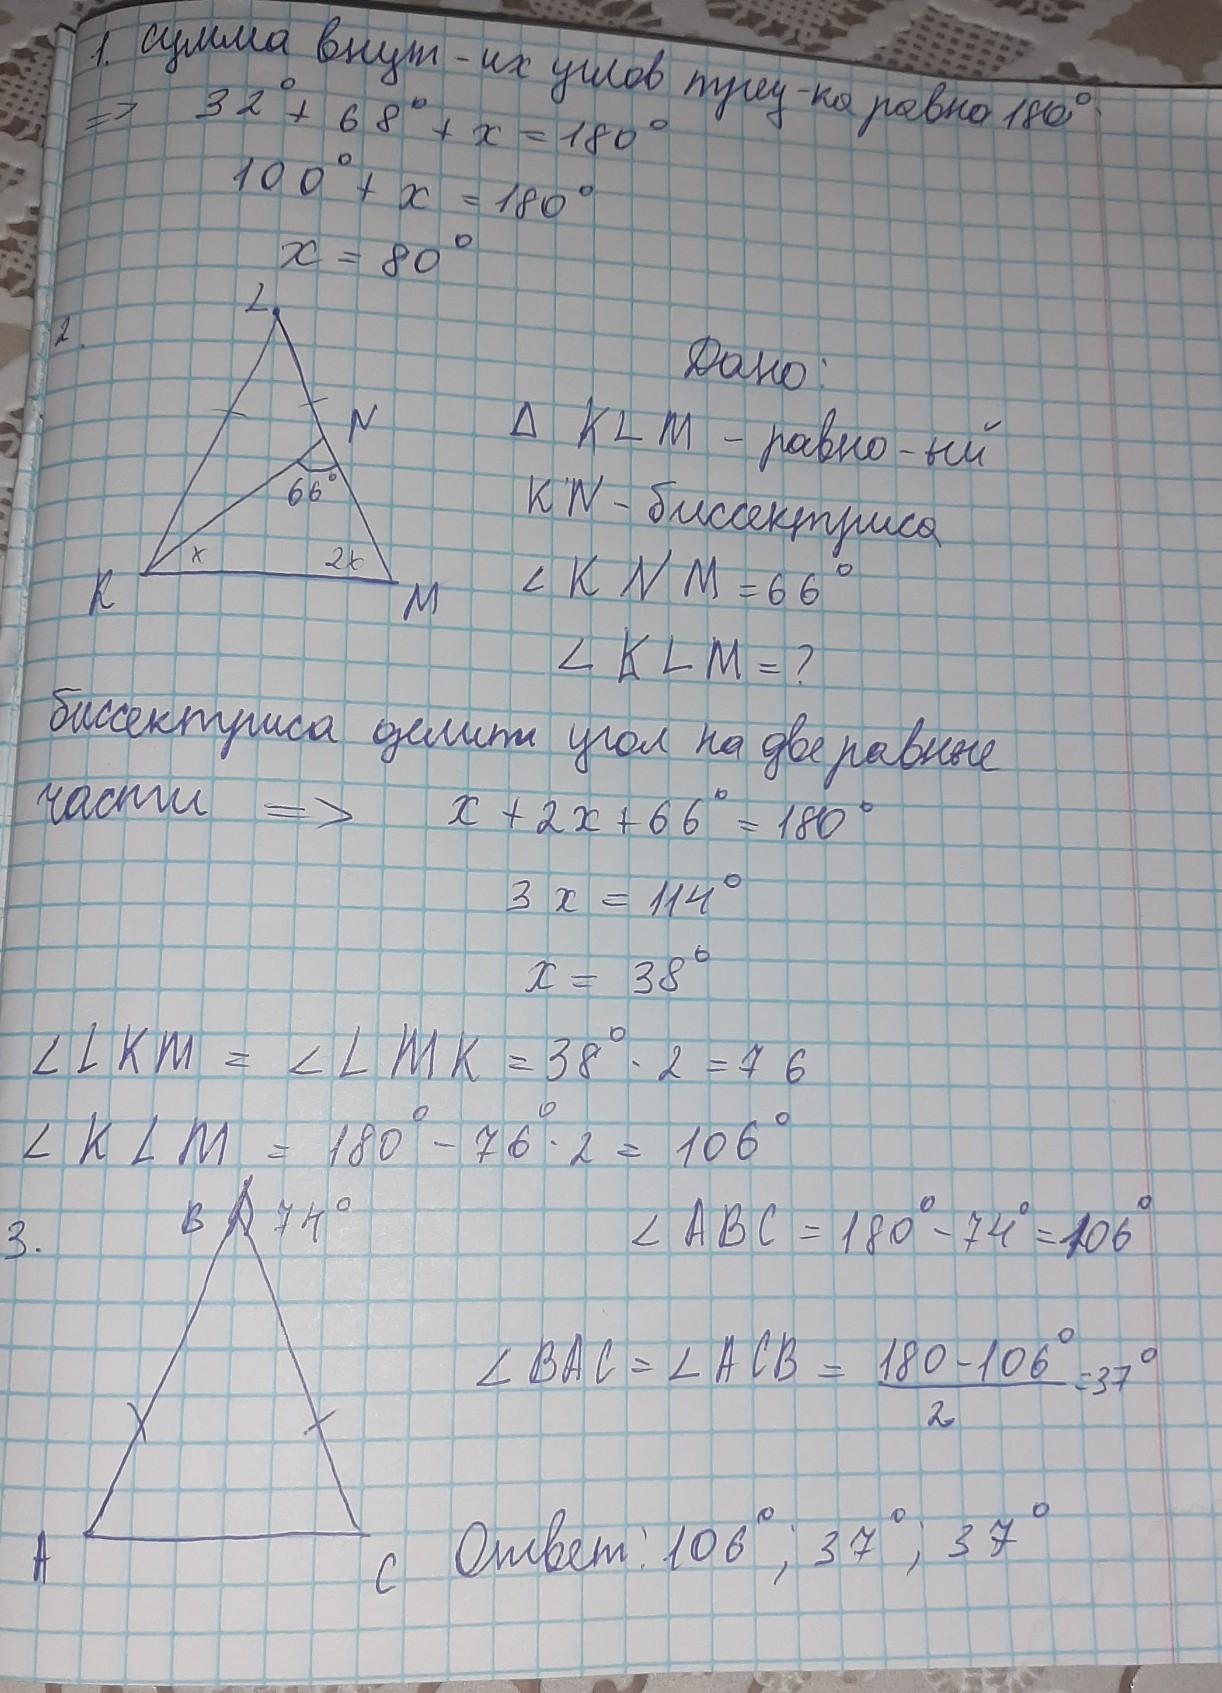 1. сумма внут-их углов треу-ка равно 180°
=> 32° + 68° + x = 180°
100° + x = 180°
x = 80°
2.
L
N
66°
x
2x
K
M
Дано:
Δ KLM - равно-ый
KN - биссектриса
∠KNM = 66°
∠KLM = ?
биссектриса делит угол на две равные
части => x + 2x + 66° = 180°
3x = 114°
x = 38°
∠LKM = ∠LMK = 38° · 2 = 76
∠KLM = 180° - 76° · 2 = 106°
3.
B 74°
A
C
∠ABC = 180° - 74° = 106°
∠BAC = ∠ACB = (180 - 106°)/2 = 37°
Ответ: 106°; 37°; 37°